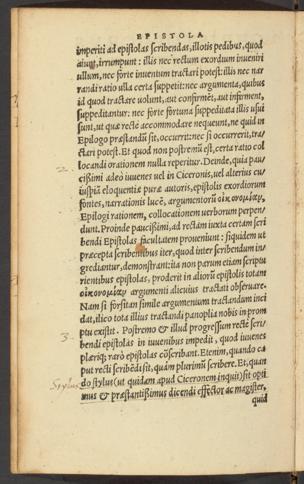 EPISTOLA
imperiti ad epistolas scribendas, illotis pedibus, quod
aiunt, irrumpunt: illis nec rectum exordium inveniri
ullum, nec forte inventum tractari potest: illis nec nar
randi ratio ulla certa suppetit: nec argumenta, quibus
id quod tractare uolunt, aut confirmēt, aut infirment,
suppeditantur: nec forte fortuna suppeditata illis usui
sunt, ut quæ recte accommodare nequeunt, ne quid in
Epilogo præstandū sit, occurrit: nec si occurrerit, tra/
ctari potest. Et quod non postremū est, certa ratio col
locandi orationem nulla reperitur. Deinde, quia pau/
2.
cißimi adeò iuuenes uel in Ciceronis, uel alterius cu/
iuspiā eloquentiæ puræ autoris, epistolis exordiorum
fontes, narrationis lucē, argumentorū οἰκονομίαν,
Epilogi rationem, collocationem uerborum perpen/
dunt. Proinde paucißimi, ad rectam iuxta certam scri
bendi Epistolas facultatem proueniunt: siquidem ut
præcepta scribentibus iter, quod inter scribendum in/
grediantur, demonstrant: ita non parum etiam scriptu
rientibus epistolas, proderit in aliorū epistolis totam
οἰκονομίαν argumenti alicuius tractati obseruare.
Nam si forsitan simile argumentum tractandum inci
dat, ilico tota illius tractandi panoplia nobis in prom
3.
ptu existit. Postremo & illud progressum recte scri/
bendi epistolas in iuuenibus impedit, quod iuuenes
pleriq; rarò epistolas cōscribant. Etenim, quando ca
put recti scribēdi sit, quàm plurimū scribere. Et, quan
Stylus
do stylus (ut quidam apud Ciceronem inquit) sit opti
mus & præstantißimus dicendi effector ac magister,
quid